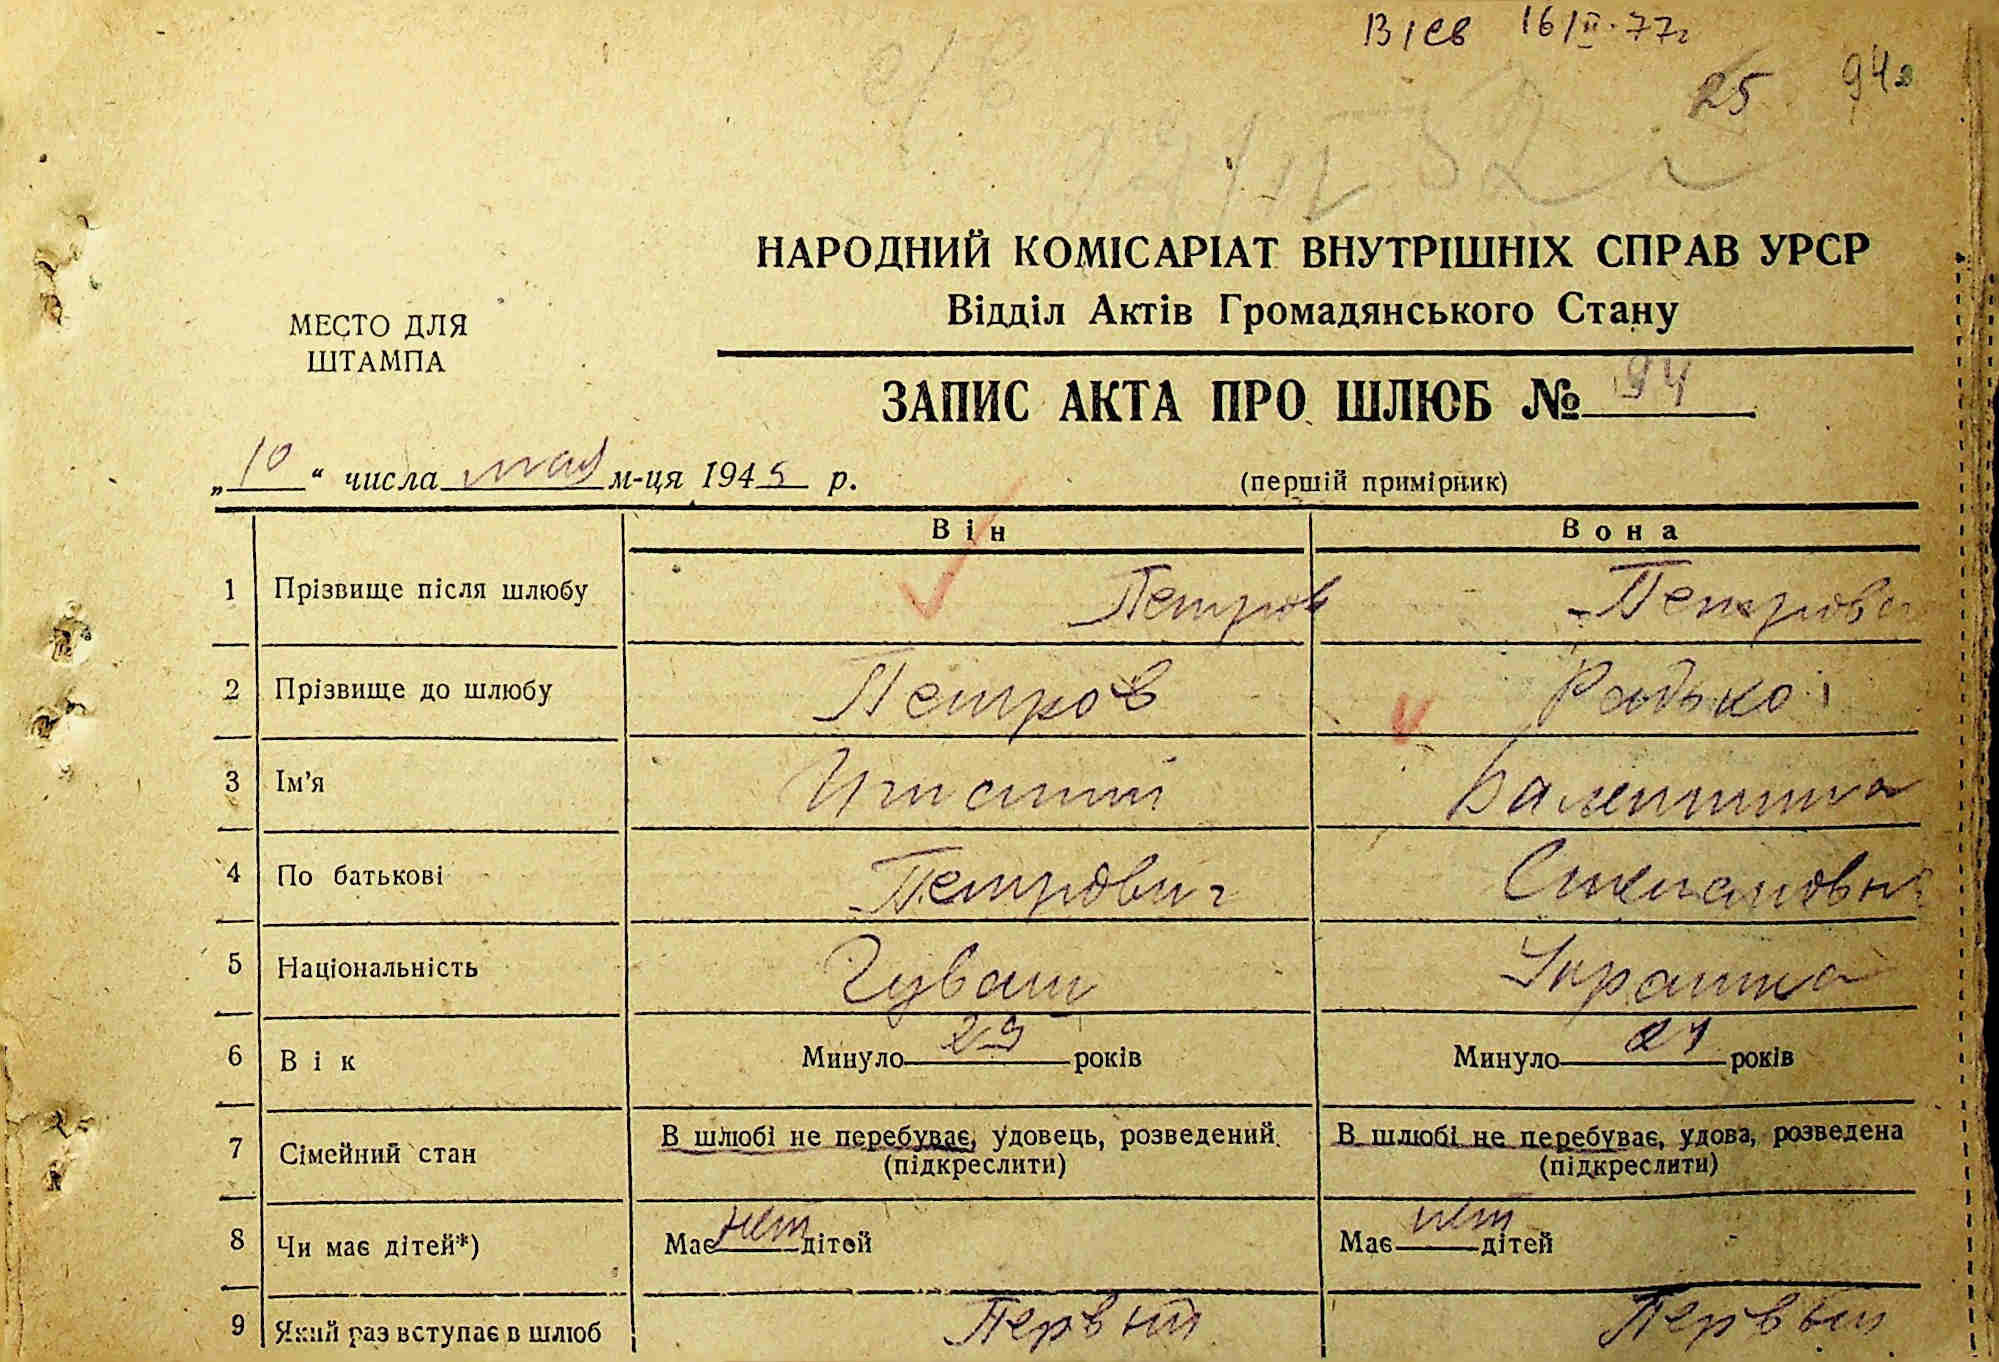 16/II-77г
25 94
НАРОДНИЙ КОМІСАРІАТ ВНУТРІШНІХ СПРАВ УРСР
Відділ Актів Громадянського Стану
МЕСТО ДЛЯ
ШТАМПА
ЗАПИС АКТА ПРО ШЛЮБ № 94
„10“ числа мая м-ця 1945 р. (першій примірник)
Він Вона
1 Прізвище після шлюбу Петров Петрова
2 Прізвище до шлюбу Петров Радько
3 Ім'я Игнатий Валентина
4 По батькові Петрович Степановна
5 Національність Чуваш Украинка
6 Вік Минуло 29 років Минуло 21 років
7 Сімейний стан В шлюбі не перебуває, удовець, розведений. (підкреслити) В шлюбі не перебуває, удова, розведена (підкреслити)
8 Чи має дітей*) Має нет дітей Має нет дітей
9 Який раз вступає в шлюб Первый Первый